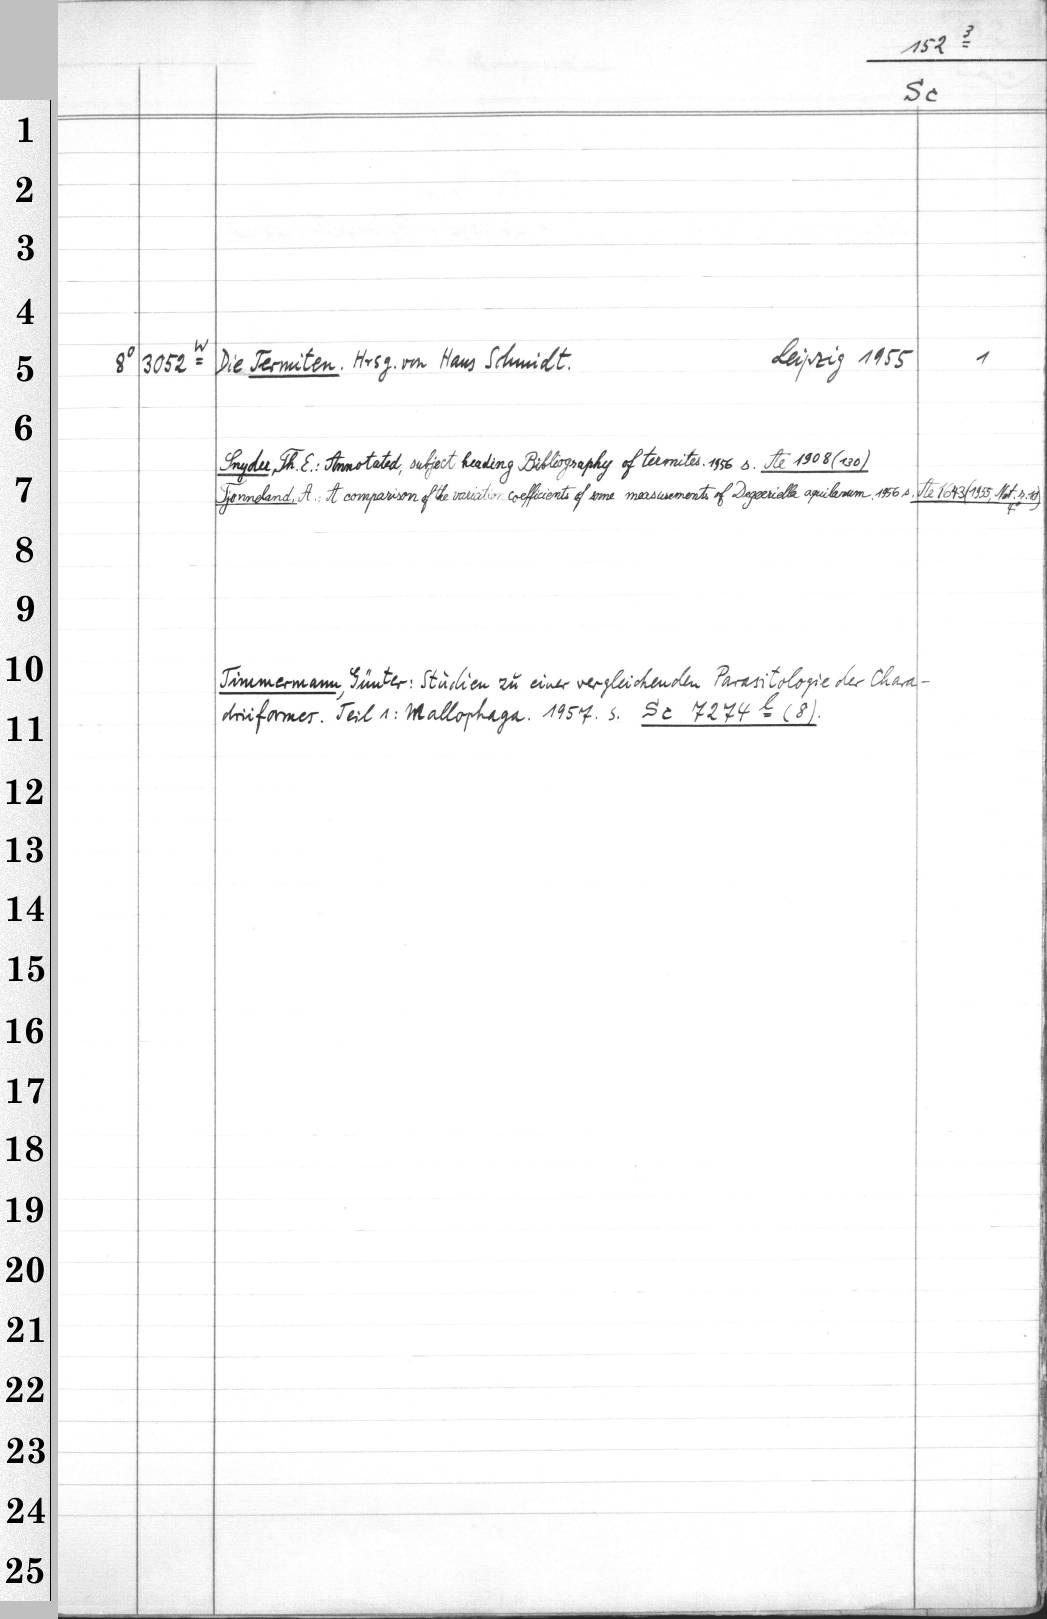 152 3
Sc
1
2
3
4
5
8° 3052 w Die Termiten. Hrsg. von Hans Schmidt. Leipzig 1955 1
6
Snyder, Th. E.: Annotated, subject heading Bibliography of termites. 1956 s. Ae 1908 (130)
7
Tjønneland, A.: A comparison of the variation coefficients of some measurements of Degeeriella aquilarum. 1956 s. (1955, Nat. r. 10) 4°
8
9
10
Timmermann, Günter: Studien zu einer vergleichenden Parasitologie der Chara-
driiformes. Teil 1: Mallophaga. 1957. s. Sc 7274 l (8).
11
12
13
14
15
16
17
18
19
20
21
22
23
24
25